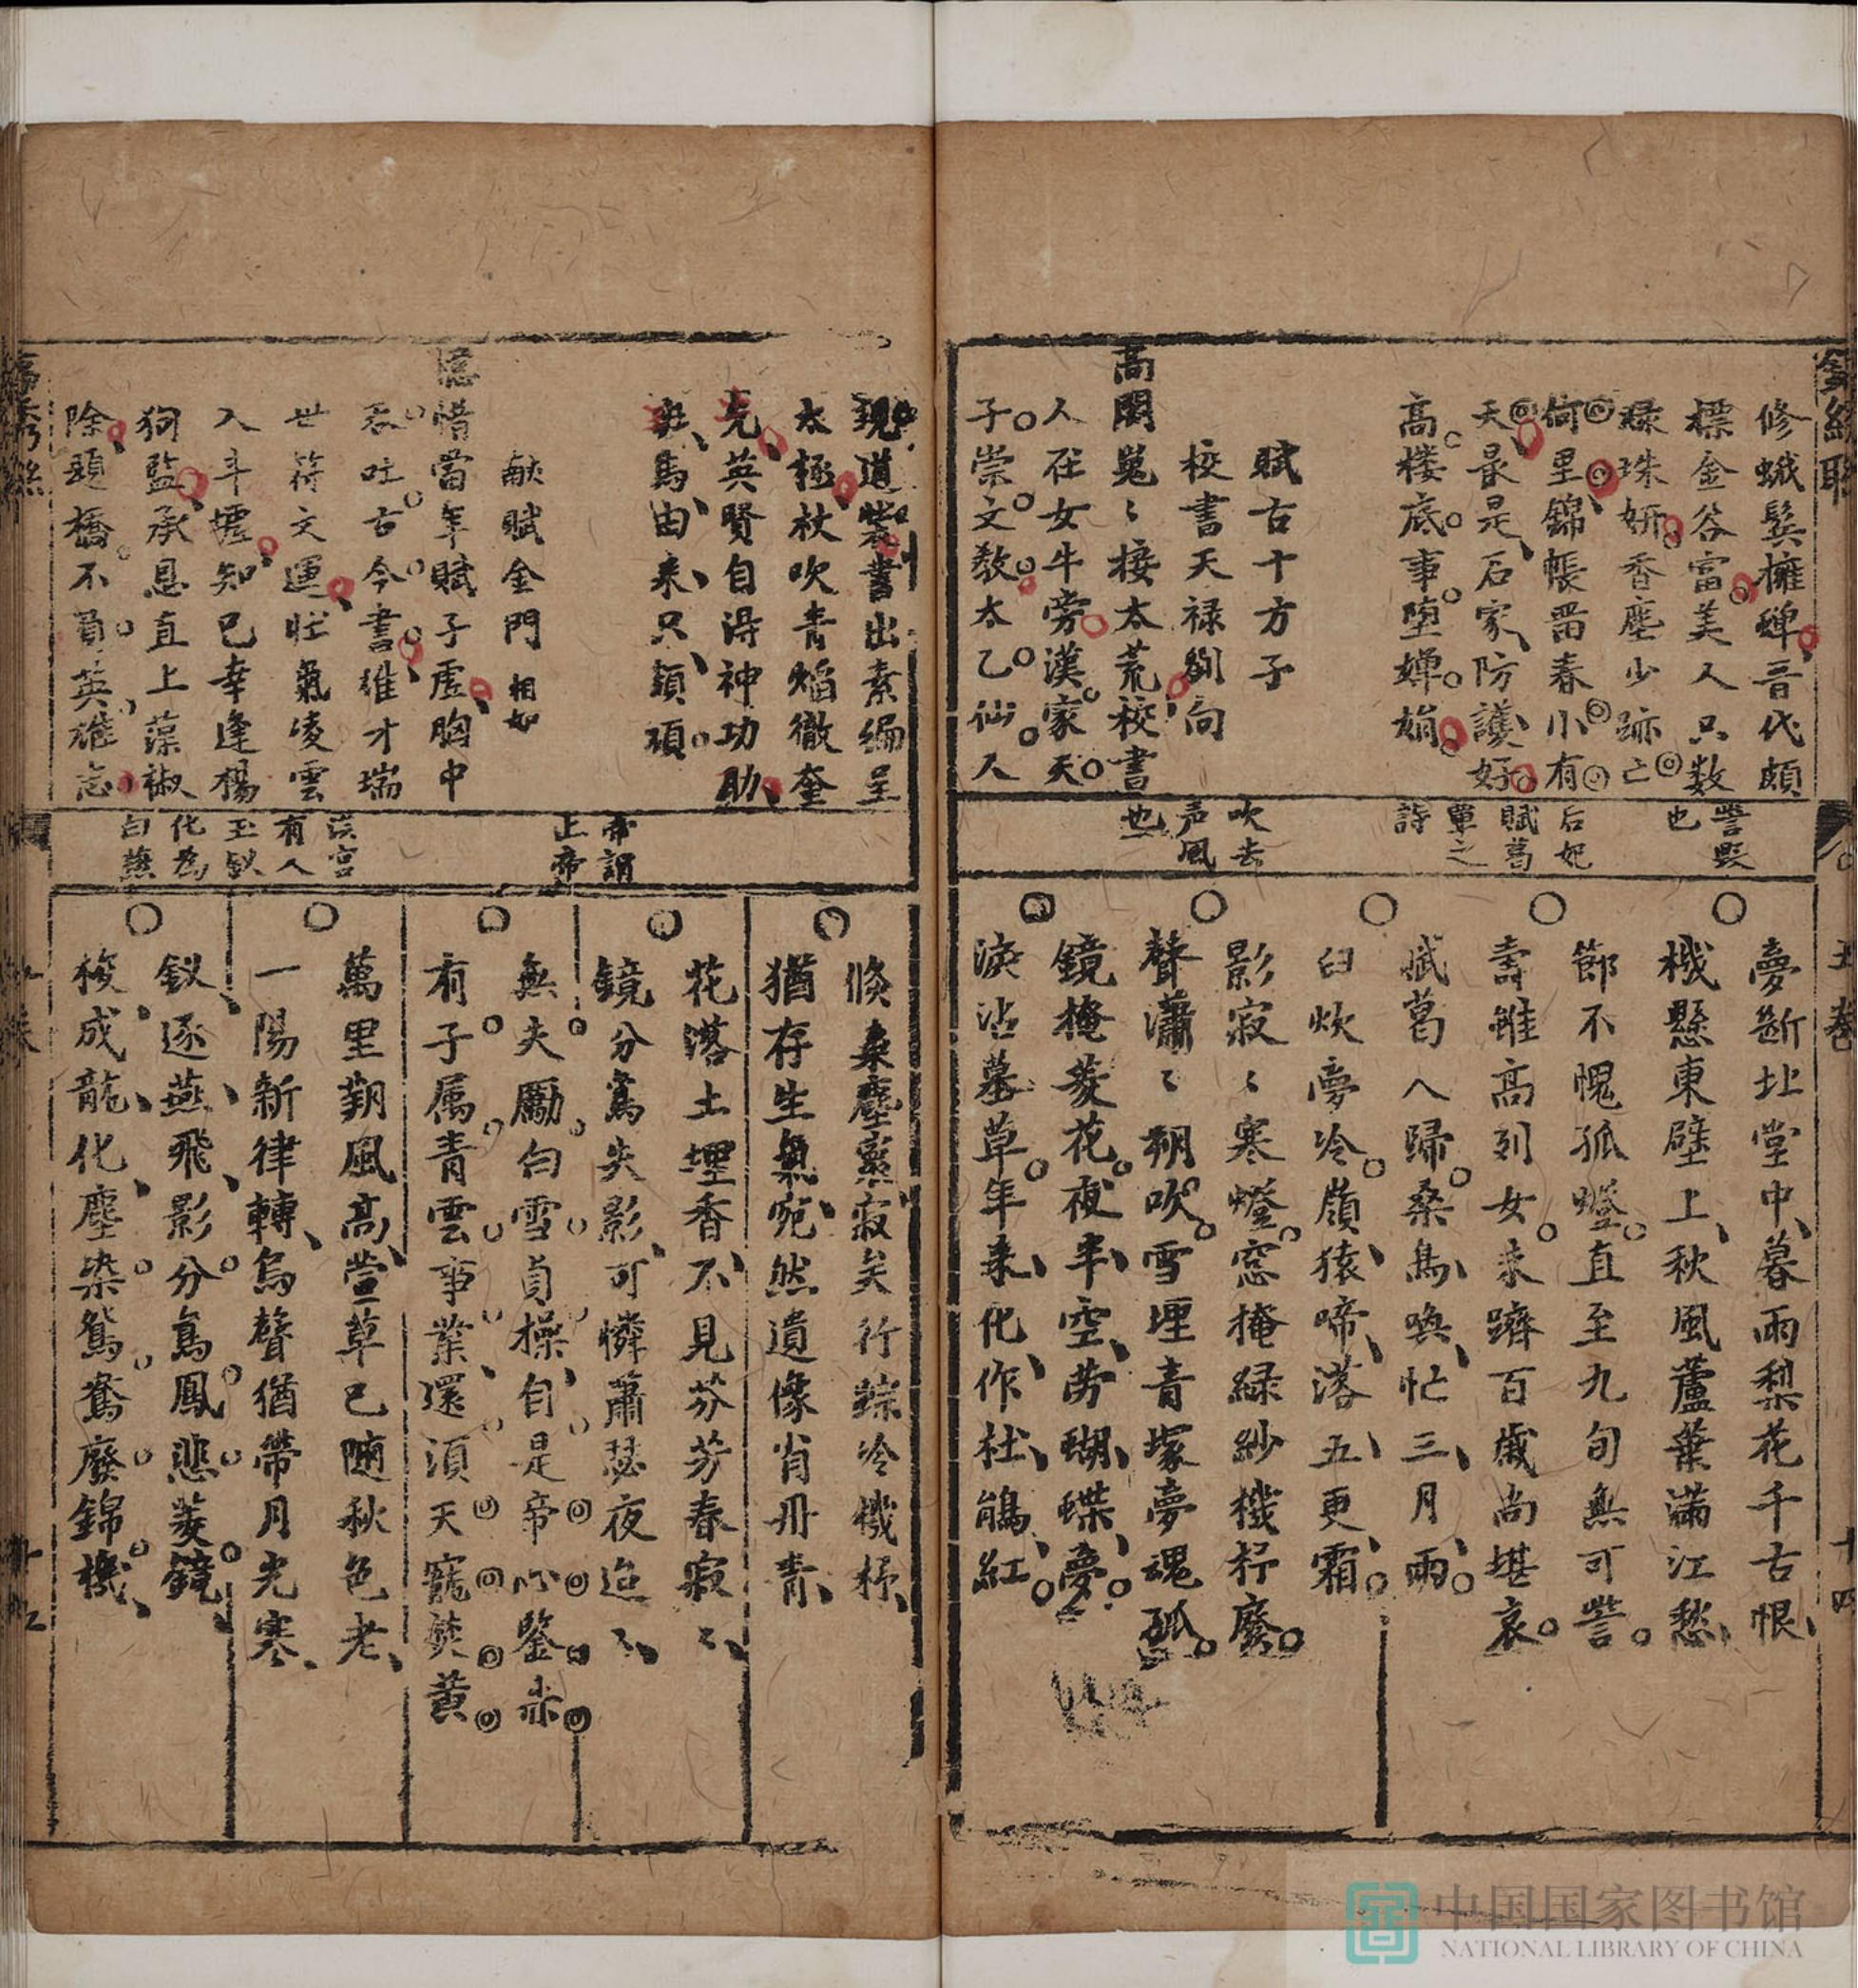 修蛾鬂擁蟬晋代頗
標金谷富美人只数
緑珠妍香塵少跡亡
何里錦帳畱春小有
天最是石家防護好
高楼底事堕嬋娟
賦古十方子
校書天禄劉向
高閣巍〻接太荒校書
人在女牛旁漢家天
子崇文教太乙仙人
訾毁
也
后妃
賦葛
覃之
詩
吹去
声風
也
夢断北堂中暮雨梨花千古恨
機懸東壁上秋風蘆葉滿江愁
節不愧孤燈直至九旬無可訾
壽雖高列女未躋百歲尚堪哀
賦葛人歸桑鳥喚忙三月雨
臼炊夢冷嶺猿啼落五更霜
影寂〻寒燈窓掩緑紗機杼廢
聲瀟〻朔吹雪埋青塚夢魂孤
鏡掩菱花夜半空勞蝴蝶夢
淚沾墓草年来化作杜鵑紅
五巻
十四
現道裝書出素編呈
太極杖吹青焰徹奎
光英賢自淂神功助
班馬由来只頡頏
献賦金門 相如
憶惜當年賦子虚胸中
吞吐古今書雄才瑞
世符文運壯氣凌雲
入斗墟知己幸逢楊
狗監承恩直上藻椒
除題橋不負英雄志
帝謂
上帝
漢宮
有人
玉釵
化為
白燕
倏棄塵寰寂矣行踪冷機杼
猶存生氣宛然遺像肖丹青
花落土埋香不見芬芳春寂〻
鏡分鸞失影可憐蕭瑟夜迢〻
無夫勵白雪貞操自是帝心鑒赤
有子属青雲事業還湏天寵焚黄
萬里朔風高萱草已隨秋色老
一陽新律轉烏聲猶帶月光寒
釵逐燕飛影分鳥鳳悲菱鏡
梭成龍化塵染鴛鴦廢錦機
中国国家图书馆
NATIONAL LIBRARY OF CHINA